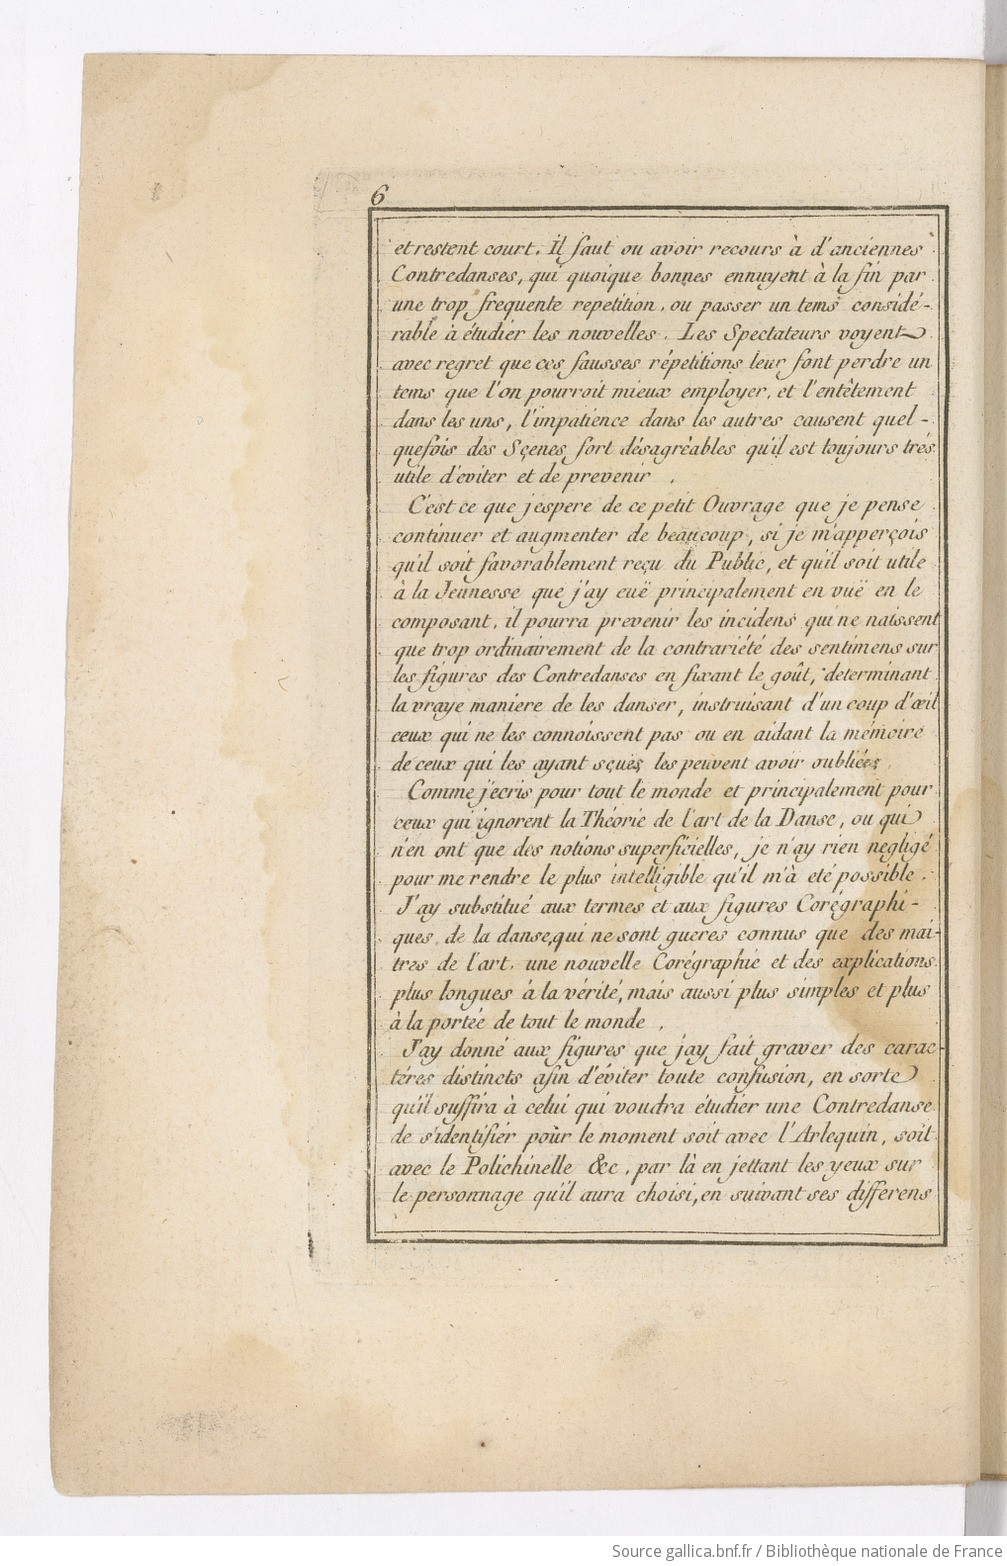 6
et restent court. Il faut ou avoir recours à d'anciennes
Contredanses, qui quoique bonnes ennuyent à la fin par
une trop frequente repetition, ou passer un tems considé-
rable à étudier les nouvelles. Les Spectateurs voyent
avec regret que ces fausses répetitions leur font perdre un
tems que l'on pourroit mieux employer, et l'entêtement
dans les uns, l'impatience dans les autres causent quel-
quefois des Sçenes fort désagréables qu'il est toujours trés
utile d'eviter et de prevenir.
C'est ce que j'espere de ce petit Ouvrage que je pense
continuer et augmenter de beaucoup, si je m'apperçois
qu'il soit favorablement reçu du Public, et qu'il soit utile
à la Jeunesse que j'ay euë principalement en vuë en le
composant, il pourra prevenir les incidens qui ne naissent
que trop ordinairement de la contrariété des sentimens sur
les figures des Contredanses en fixant le goût, determinant
la vraye maniere de les danser, instruisant d'un coup d'œil
ceux qui ne les connoissent pas ou en aidant la mémoire
de ceux qui les ayant sçues les peuvent avoir oubliées.
Comme j'ecris pour tout le monde et principalement pour
ceux qui ignorent la Théorie de l'art de la Danse, ou qui
n'en ont que des notions superficielles, je n'ay rien negligé
pour me rendre le plus intelligible qu'il m'à eté possible.
J'ay substitué aux termes et aux figures Corégraphi-
ques de la danse, qui ne sont gueres connus que des mai-
tres de l'art, une nouvelle Corégraphie et des explications
plus longues à la vérité, mais aussi plus simples et plus
à la portée de tout le monde.
J'ay donné aux figures que j'ay fait graver des carac-
téres distincts afin d'éviter toute confusion, en sorte
qu'il suffira à celui qui voudra étudier une Contredanse
de s'identifier pour le moment soit avec l'Arlequin, soit
avec le Polichinelle &c, par là en jettant les yeux sur
le personnage qu'il aura choisi, en suivant ses differens
Source gallica.bnf.fr / Bibliothèque nationale de France